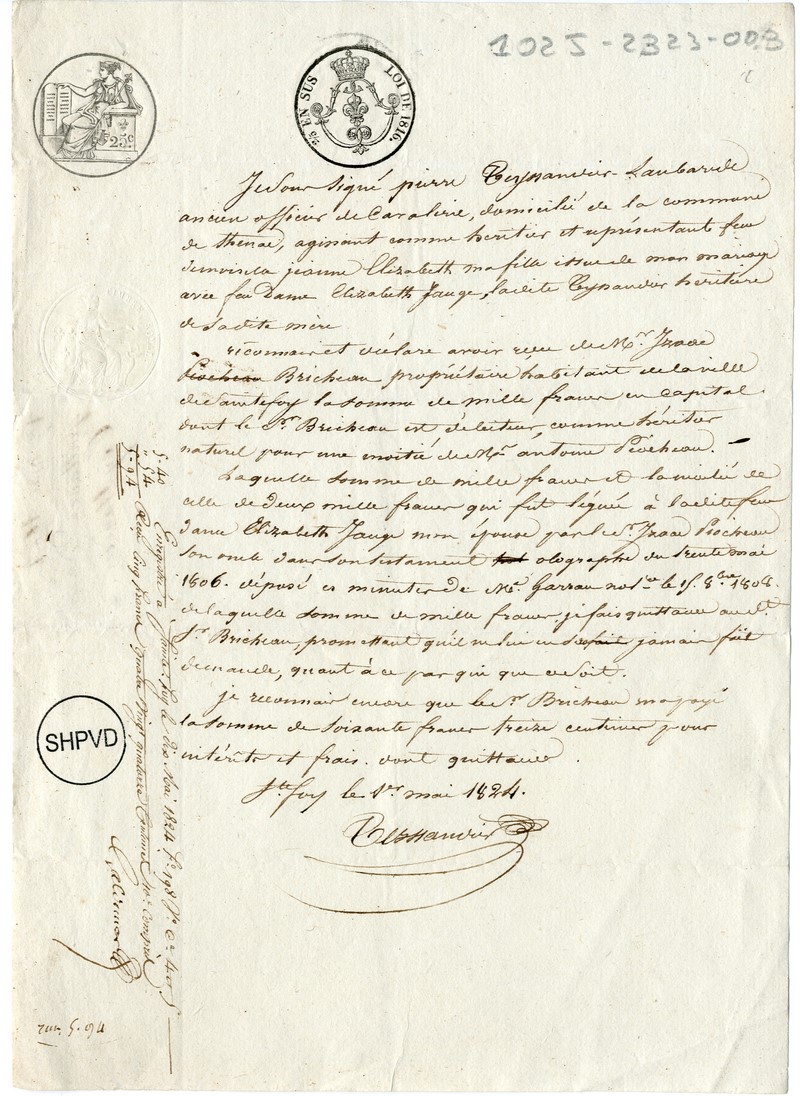 1025-2323-003
25c
2/5 EN SUS LOI DE 1816.
Je Sousigné pierre Teyssandier Laubarede
ancien officier de Cavalerie, domicilié de la commune
de thenac, agissant comme heritier et représentant feu
demoiselle jeanne Elizabeth ma fille issue de mon mariage
avec feu Dame Elizabeth Jauge, ladite Teyssandier heritiere
de Sadite mère
reconnais et déclare avoir reçu de Mr Izaac
Piocheau Bricheau propriétaire habitant de la ville
de Saintefoy la somme de mille francs en Capital
dont le Sr Bricheau est débiteur, comme héritier
naturel pour une moitié de Mr antoine Piocheau.
Laquelle somme de mille francs est la moitié de
celle de deux mille francs qui fut léguée à ladite feu
dame Elizabeth Jauge mon épouse par le Sr Izaac Piocheau
son oncle dans son testament olographe du trente mai
1806. déposé es minutes de Me Garrau notre le 15. 8bre 1808.
de laquelle somme de mille francs, je fais quittance au dt
Sr Bricheau, promettant qu'il ne lui en jamais fait
demande, quant à ce par qui que ce soit.
je reconnais encore que le Sr Bricheau m'a payé
la somme de soixante francs treize centimes pour
intérêts et frais. dont quittance.
Ste foy le 1er mai 1824.
Teyssandier
5-40
" 54
5-94
Enregistré à Sainte foy le dix Mai 1824 fo 198 Vo Ce 4 et 5
Reçu cinq francs quatre vingt quatorze Centimes Xe Compris
SHPVD
5.94